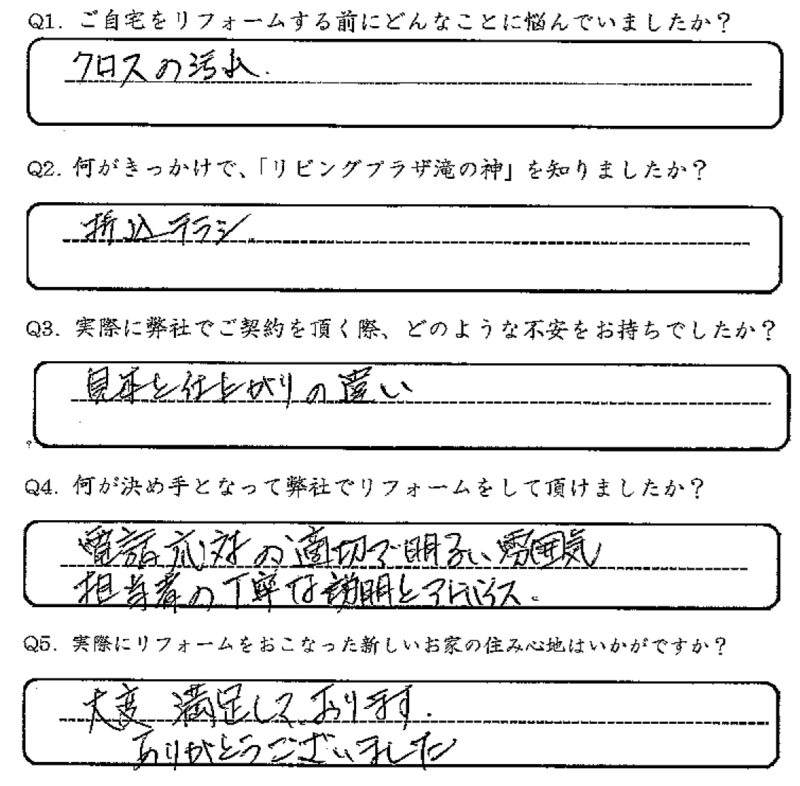 Q1. ご自宅をリフォームする前にどんなことに悩んでいましたか?
クロスの汚れ.
Q2. 何がきっかけで、「リビングプラザ滝の神」を知りましたか?
折込チラシ.
Q3. 実際に弊社でご契約を頂く際、どのような不安をお持ちでしたか?
見本と仕上がりの違い
Q4. 何が決め手となって弊社でリフォームをして頂けましたか?
電話応対の適切で明るい雰囲気
担当者の丁寧な説明とアドバイス.
Q5. 実際にリフォームをおこなった新しいお家の住み心地はいかがですか?
大変 満足しております.
ありがとうございました